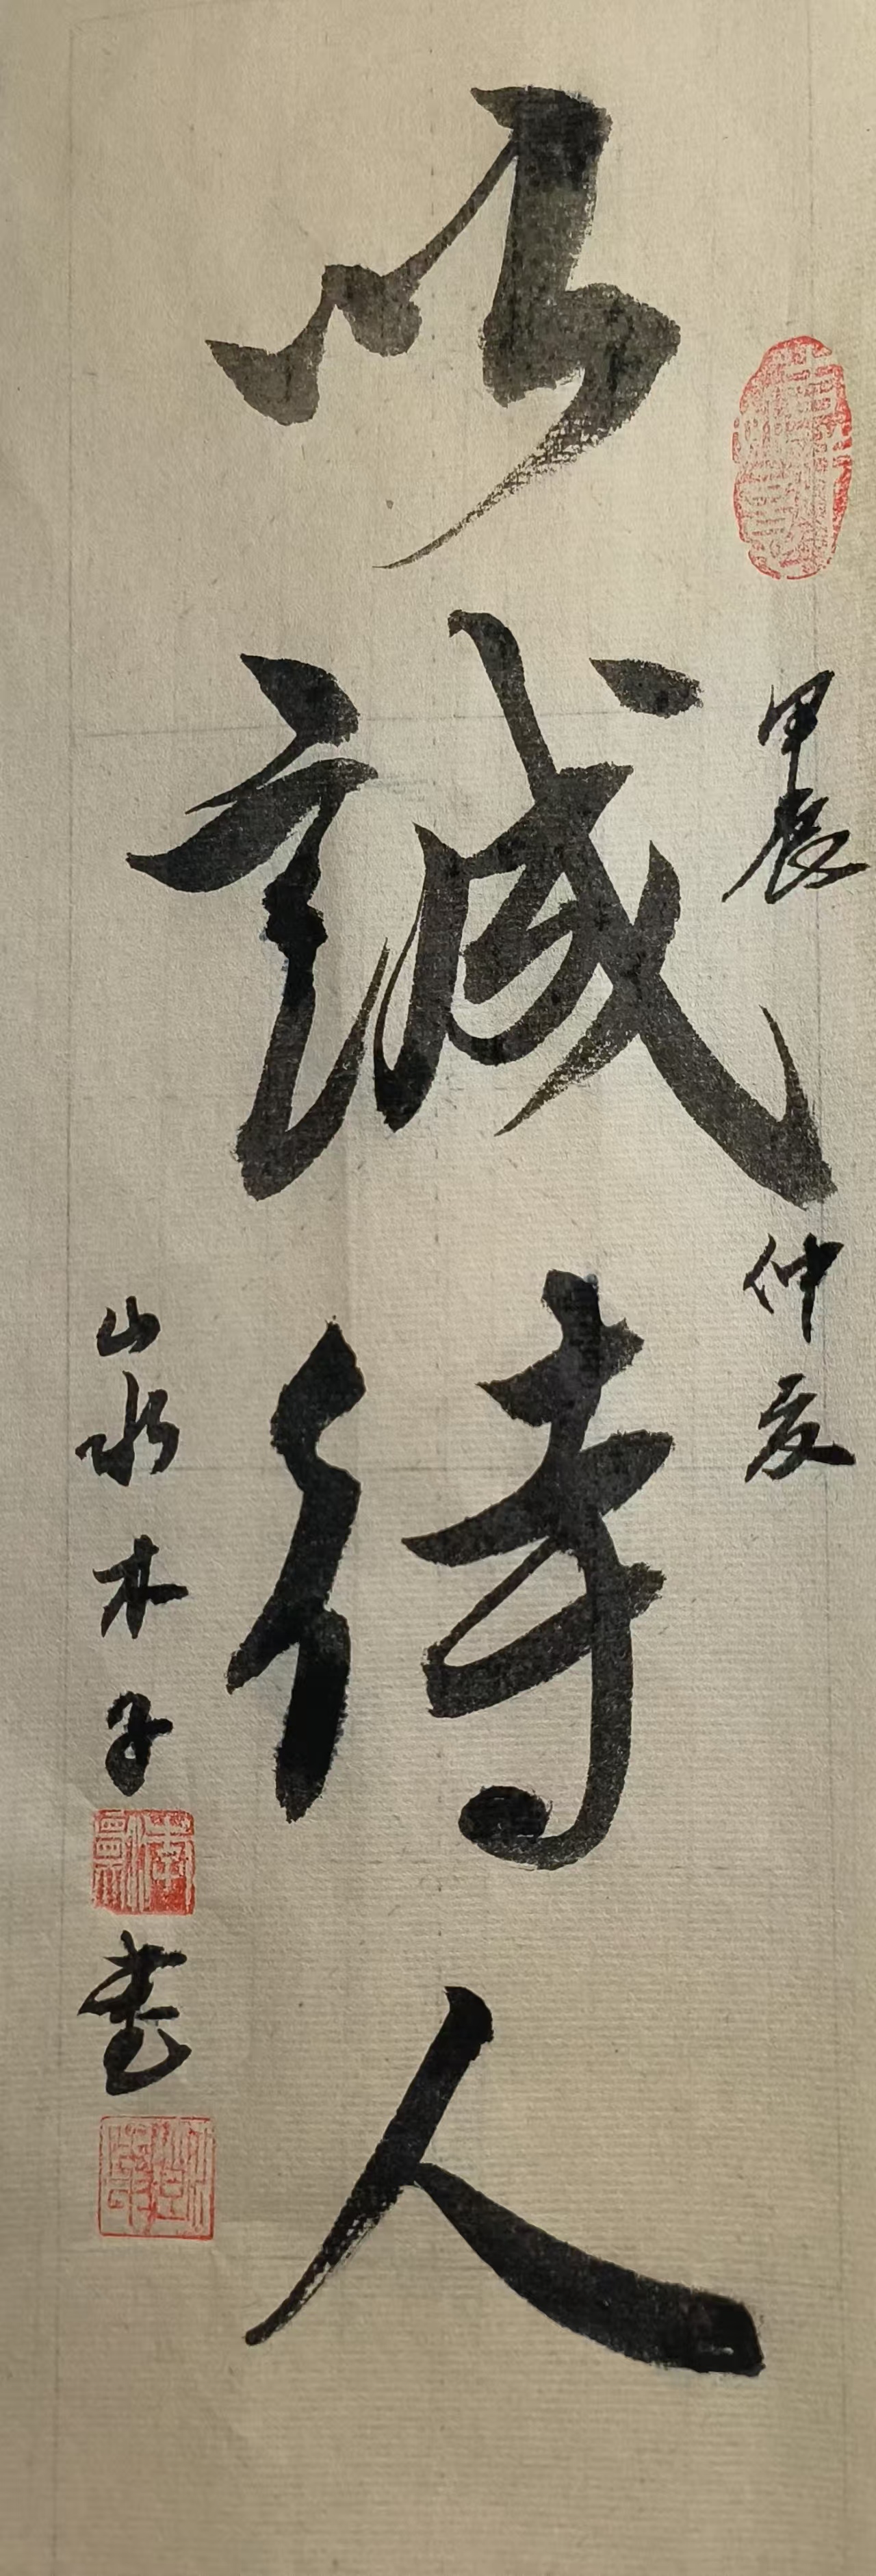 甲辰仲夏
以誠待人
山水木子書